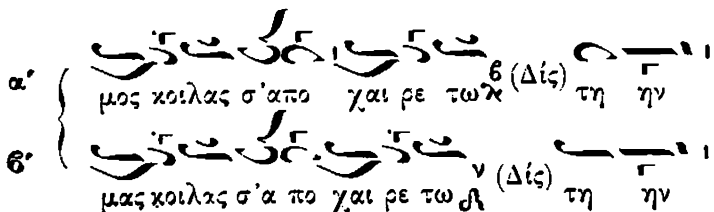 α′ μος κοιλας σ'απο χαι ρε τω (Δίς) τη ην
β′ μας κοιλας σ'α πο χαι ρε τω (Δίς) τη ην